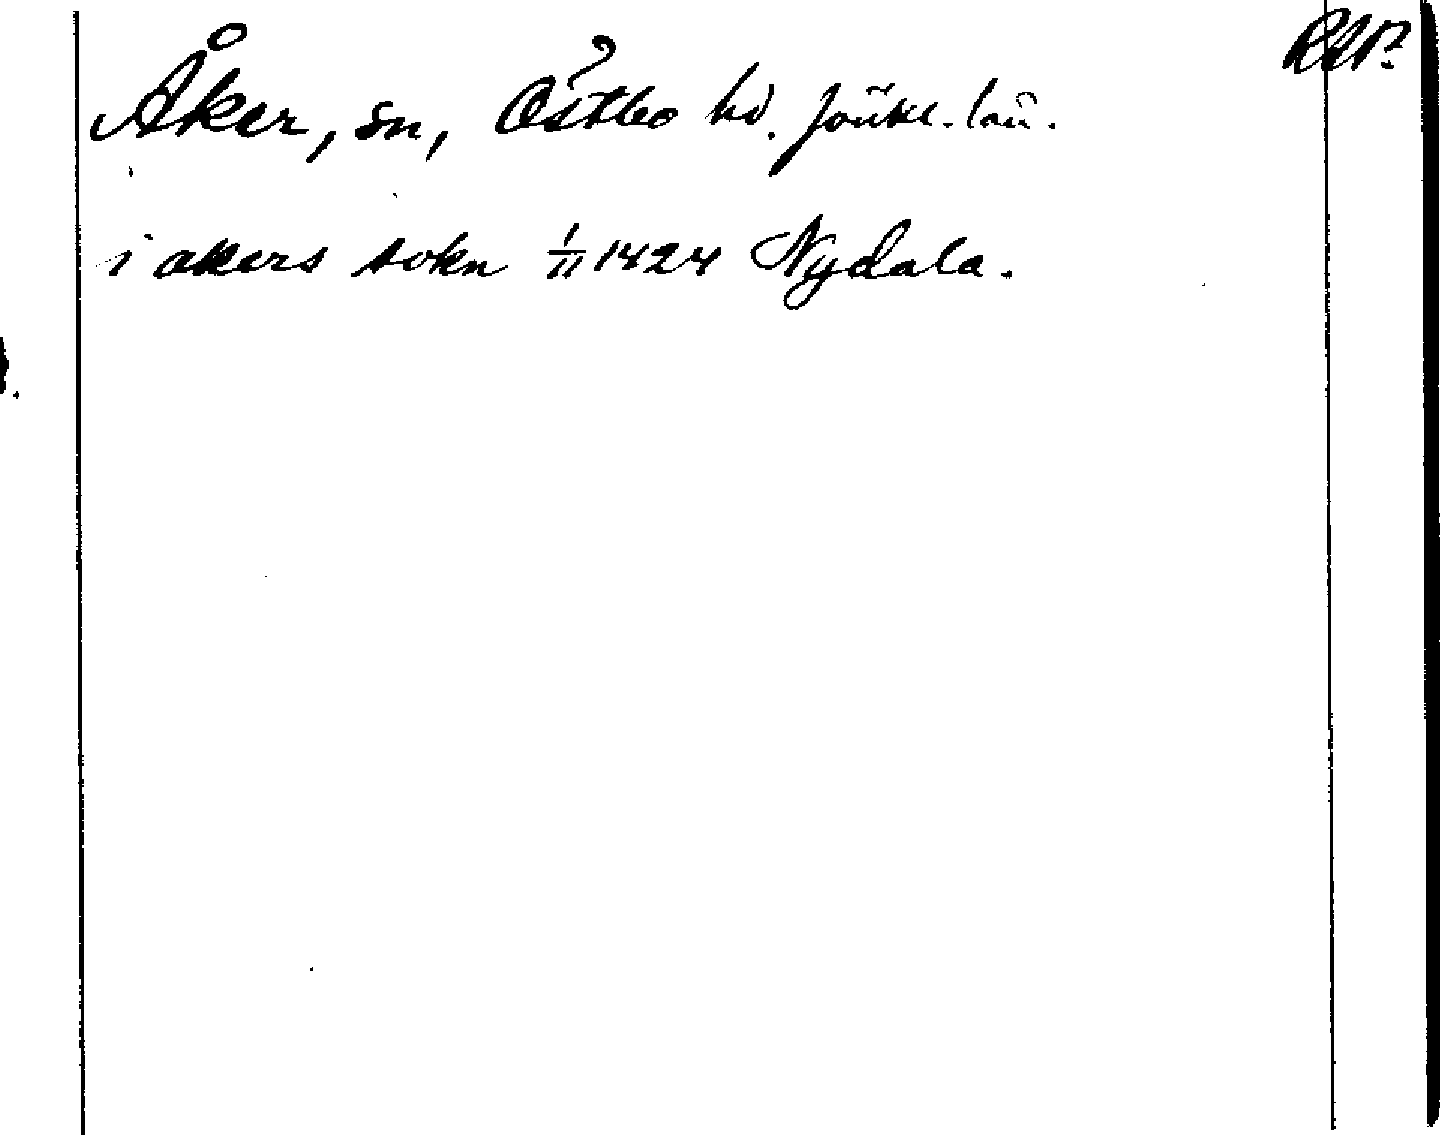 Åker, sn, Östbo hd. Jönk. län. RAP.
i akers sokn 1/11 1424 Nydala.